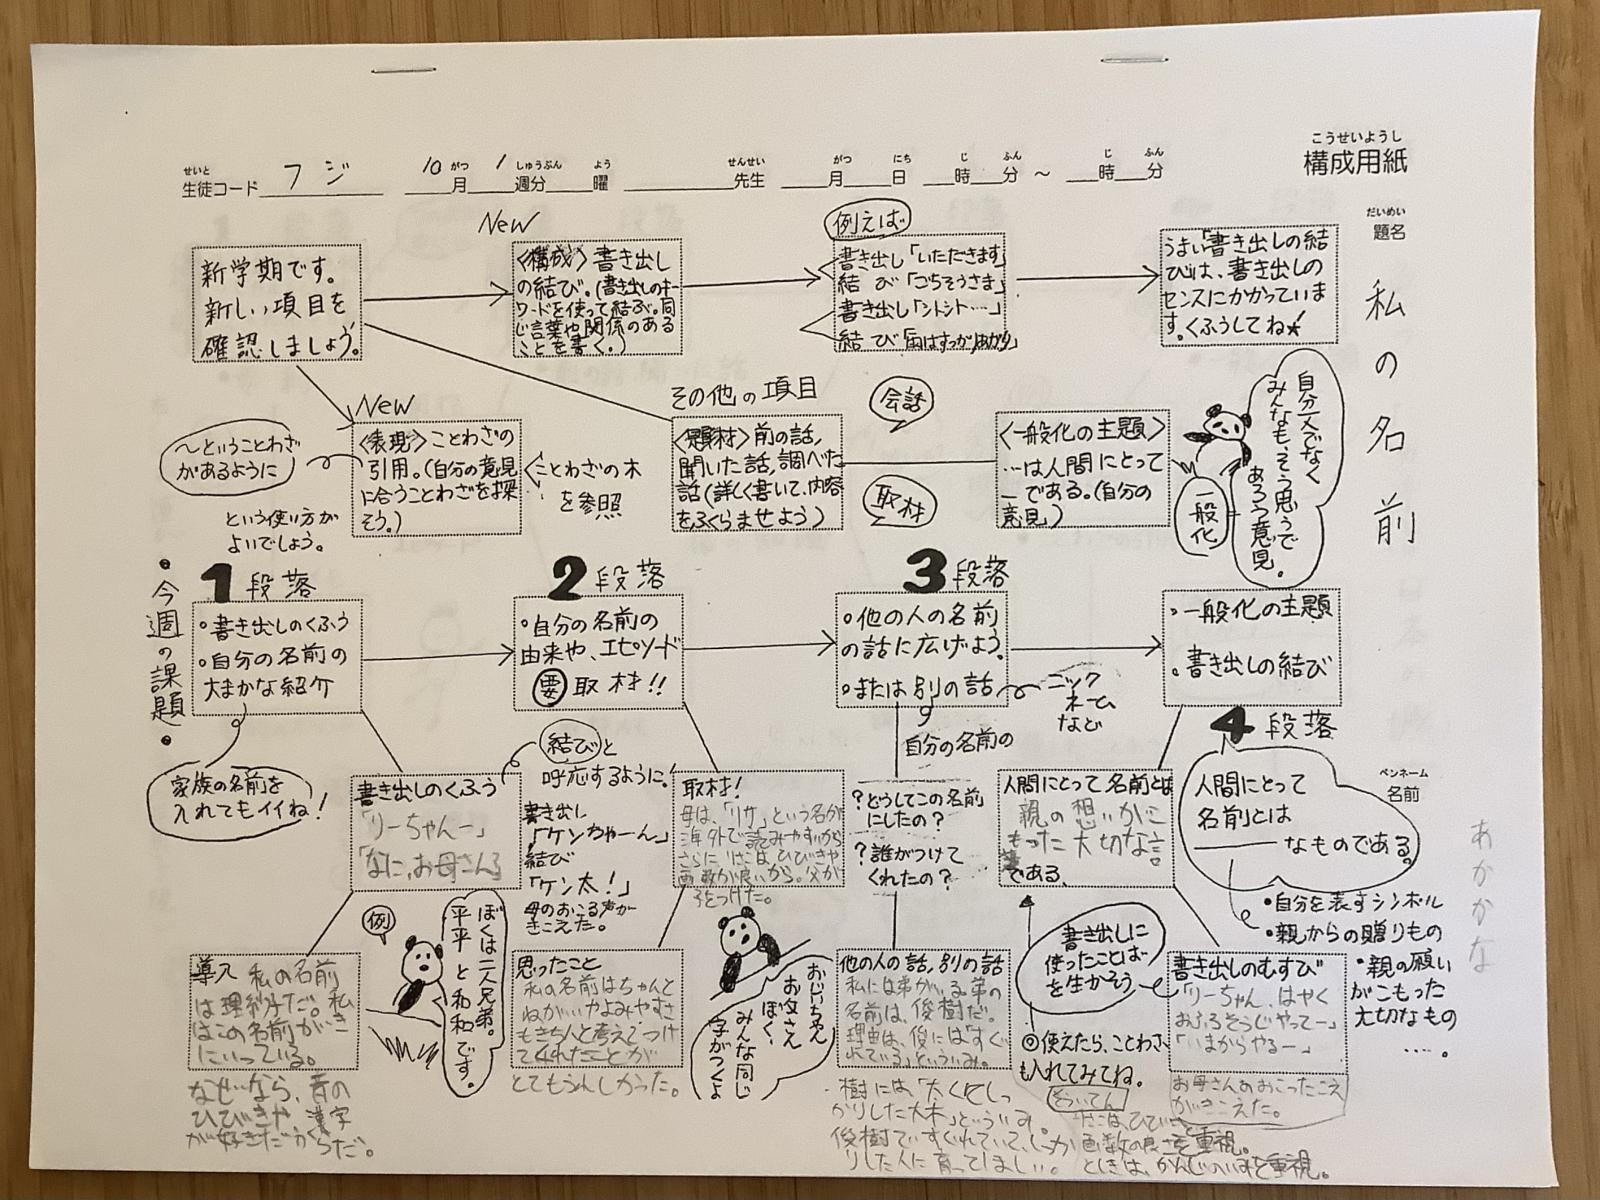 こうせいようし
構成用紙
せいと がつ しゅうぶん よう せんせい がつ にち じ ふん じ ふん
生徒コード フジ 10月 1週分 曜 先生 月 日 時 分 〜 時 分
だいめい
題名
私の名前
新学期です。
新しい項目を
確認しましょう。
New
〈構成〉書き出し
の結び。(書き出しのキー
ワードを使って結ぶ。同
じ言葉や関係のある
ことを書く。)
例えば
書き出し「いただきます」
結び「ごちそうさま」
書き出し「シトシト…」
結び「雨はすっかりあがり」
うまい「書き出しの結
びは、書き出しの
センスにかかっていま
す。くふうしてね!
New
〈表現〉ことわざの
引用。(自分の意見
に合うことわざを探
そう。)
〜ということわざ
があるように
という使い方が
よいでしょう。
ことわざの木
を参照
その他の項目
〈題材〉前の話,
聞いた話,調べた
話(詳しく書いて、内容
をふくらませよう)
会話
取材
〈一般化の主題〉
…は人間にとって
―である。(自分の
意見)
一般化
自分一人でなく
みんなもそう思うで
あろう意見。
・今週の課題・
1段落
・書き出しのくふう
・自分の名前の
大まかな紹介
家族の名前を
入れてもイイね!
2段落
・自分の名前の
由来や、エピソード
要取材!!
3段落
・他の人の名前
の話に広げよう。
・または別の話
自分の名前の
ニック
ネーム
など
4段落
・一般化の主題
・書き出しの結び
書き出しのくふう
「りーちゃんー」
「なに、お母さん」
結びと
呼応するように!
書き出し
「ケンちゃーん」
結び
「ケン太!」
母のおこる声が
きこえた。
取材!
母は、「リサ」という名が
海外で読みやすいから
さらに りさこは、ひびきや
画数が良いから。父が
子をつけた。
?どうしてこの名前
にしたの?
?誰がつけて
くれたの?
人間にとって名前とは
親の想いがこ
もった大切な言
葉である、
ペンネーム
名前
あかかな
人間にとって
名前とは
―――なものである。
・自分を表すシンボル
・親からの贈りもの
・親の願い
がこもった
大切なもの
….。
導入 私の名前
は理紗子だ。私
はこの名前がき
にいっている。
なぜなら、音の
ひびきや漢字
が好きだからだ。
例
ぼくは二人兄弟。
平平と和和です。
思ったこと
私の名前はちゃんと
ねがいやよみやすさ
もきちんと考えてつけ
てくれたことが
とてもうれしかった。
おじいちゃん
お父さん
ぼく、
みんな同じ
字がつくよ
他の人の話,別の話
私には弟がいる弟の
名前は、俊樹だ。
理由は、俊には「すぐ
れている」といういみ。
樹には、「太くてしっ
かりした大木」といういみ。
俊樹ですぐれていて、しっか
りした人に育ってほしい。
書き出しに
使ったことば
を生かそう
◎使えたら、ことわざ
も入れてみてね。
書き出しのむすび
「りーちゃん、はやく
おふろそうじやってー」
「いまからやるー」
お母さんのおこったこえ
がきこえた。
画数の良さを重視。
ときは、かんじのいみを重視。